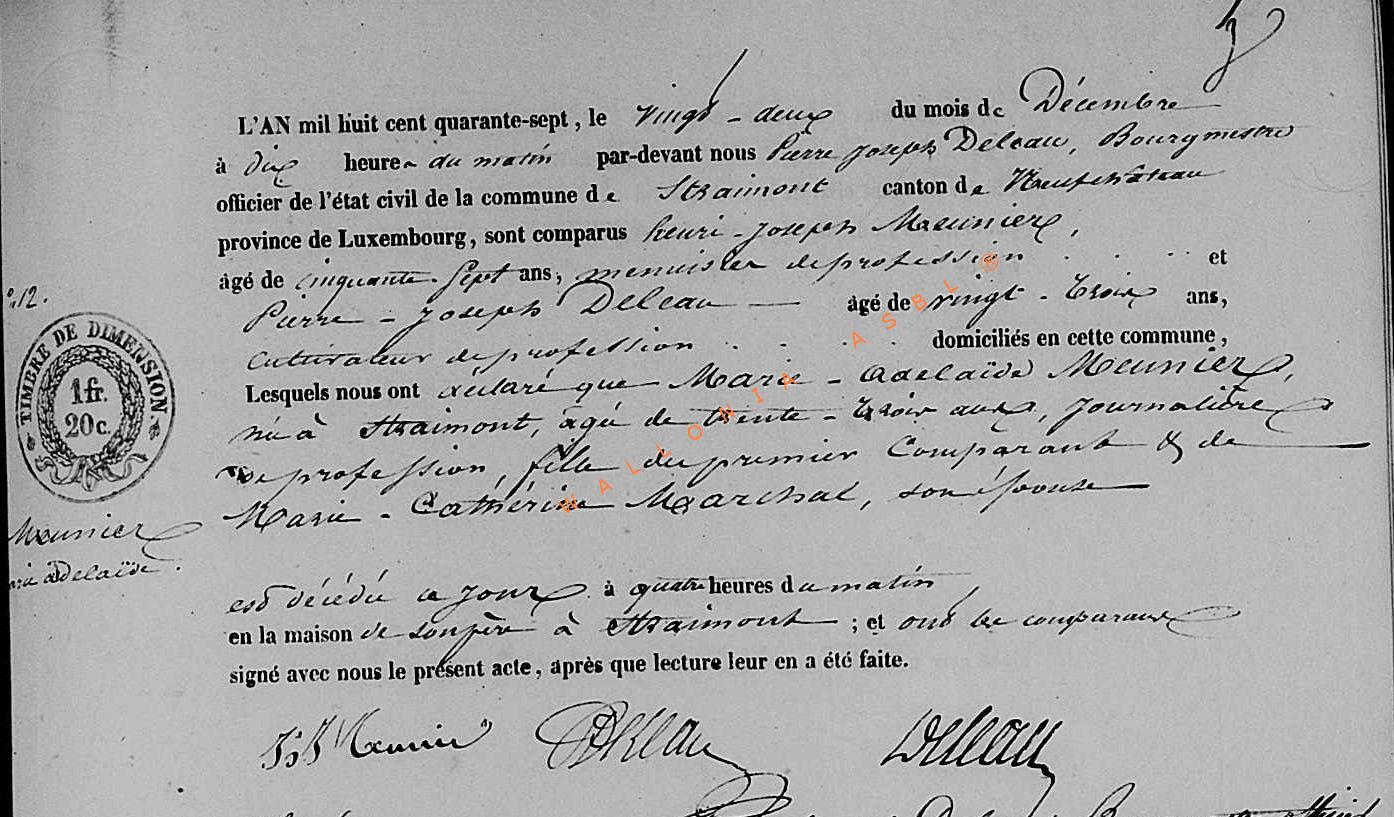 L'AN mil huit cent quarante-sept, le vingt-deux du mois de Décembre
à dix heures du matin par-devant nous Pierre Joseph Deleau, Bourgmestre
officier de l'état civil de la commune de Straimont canton de Neufchâteau
province de Luxembourg, sont comparus henri-Joseph Meunier,
âgé de cinquante-sept ans, menuisier de profession et
Pierre-Joseph Deleau âgé de vingt-trois ans,
cultivateur de profession domiciliés en cette commune,
Lesquels nous ont déclaré que Marie-Adelaïde Meunier,
née à Straimont, âgée de trente-trois ans, Journalière
de profession, fille du premier Comparant & de
Marie-Cathérine Marchal, son épouse
est décédée ce jour à quatre heures du matin,
en la maison de son père à Straimont ; et ont les comparans
signé avec nous le présent acte, après que lecture leur en a été faite.
Meunier Deleau Deleau
12.
TIMBRE DE DIMENSION
1 fr.
20 c.
Meunier
Adelaïde.
WALLONIA ASBL ®